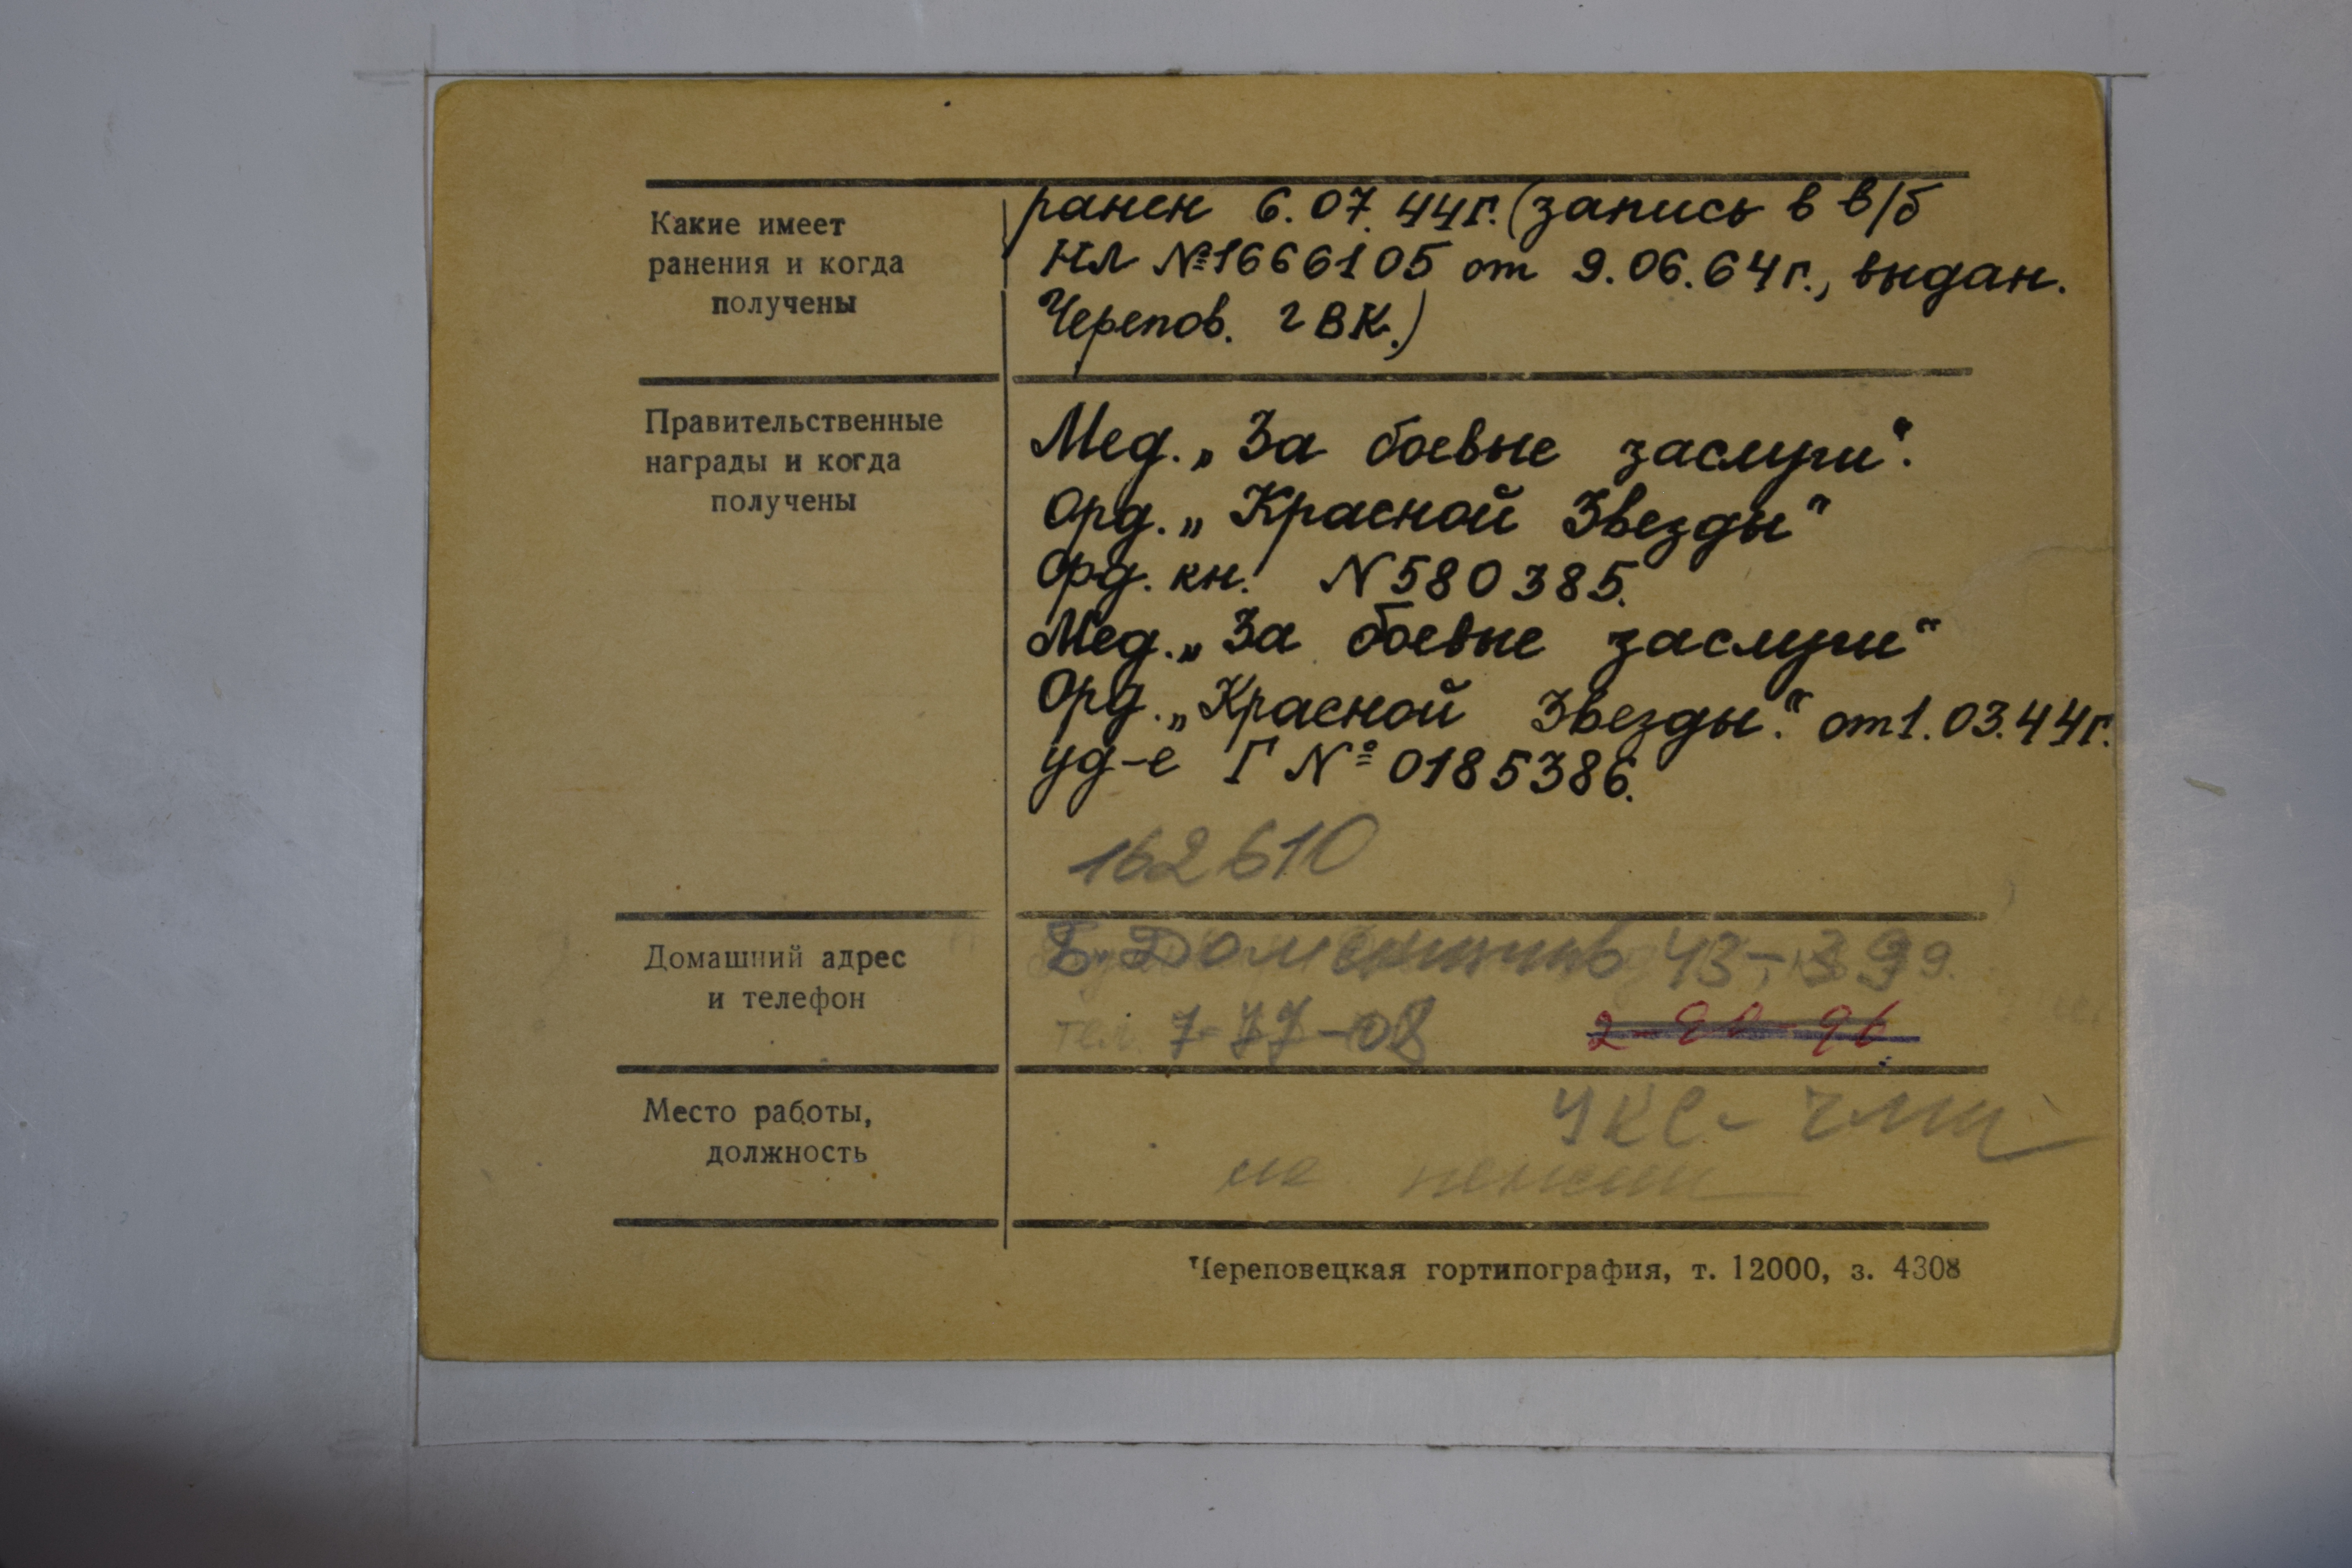 Какие имеет
ранения и когда
получены
ранен 6.07.44г. (запись в в/б
НЛ №1666105 от 9.06.64г., выдан.
Черепов. гВК.)
Правительственные
награды и когда
получены
Мед. „За боевые заслуги“.
Орд. „Красной Звезды“
Орд. кн. N580385.
Мед. „За боевые заслуги“
Орд. „Красной Звезды“. от 1.03.44г.
уд-е Г № 0185386.
162610
Домашний адрес
и телефон
Б. Доменщиков 43-
тел. 7-77-08
Место работы,
должность
УКС-
на пенсии
Череповецкая гортипография, т. 12000, з. 4308